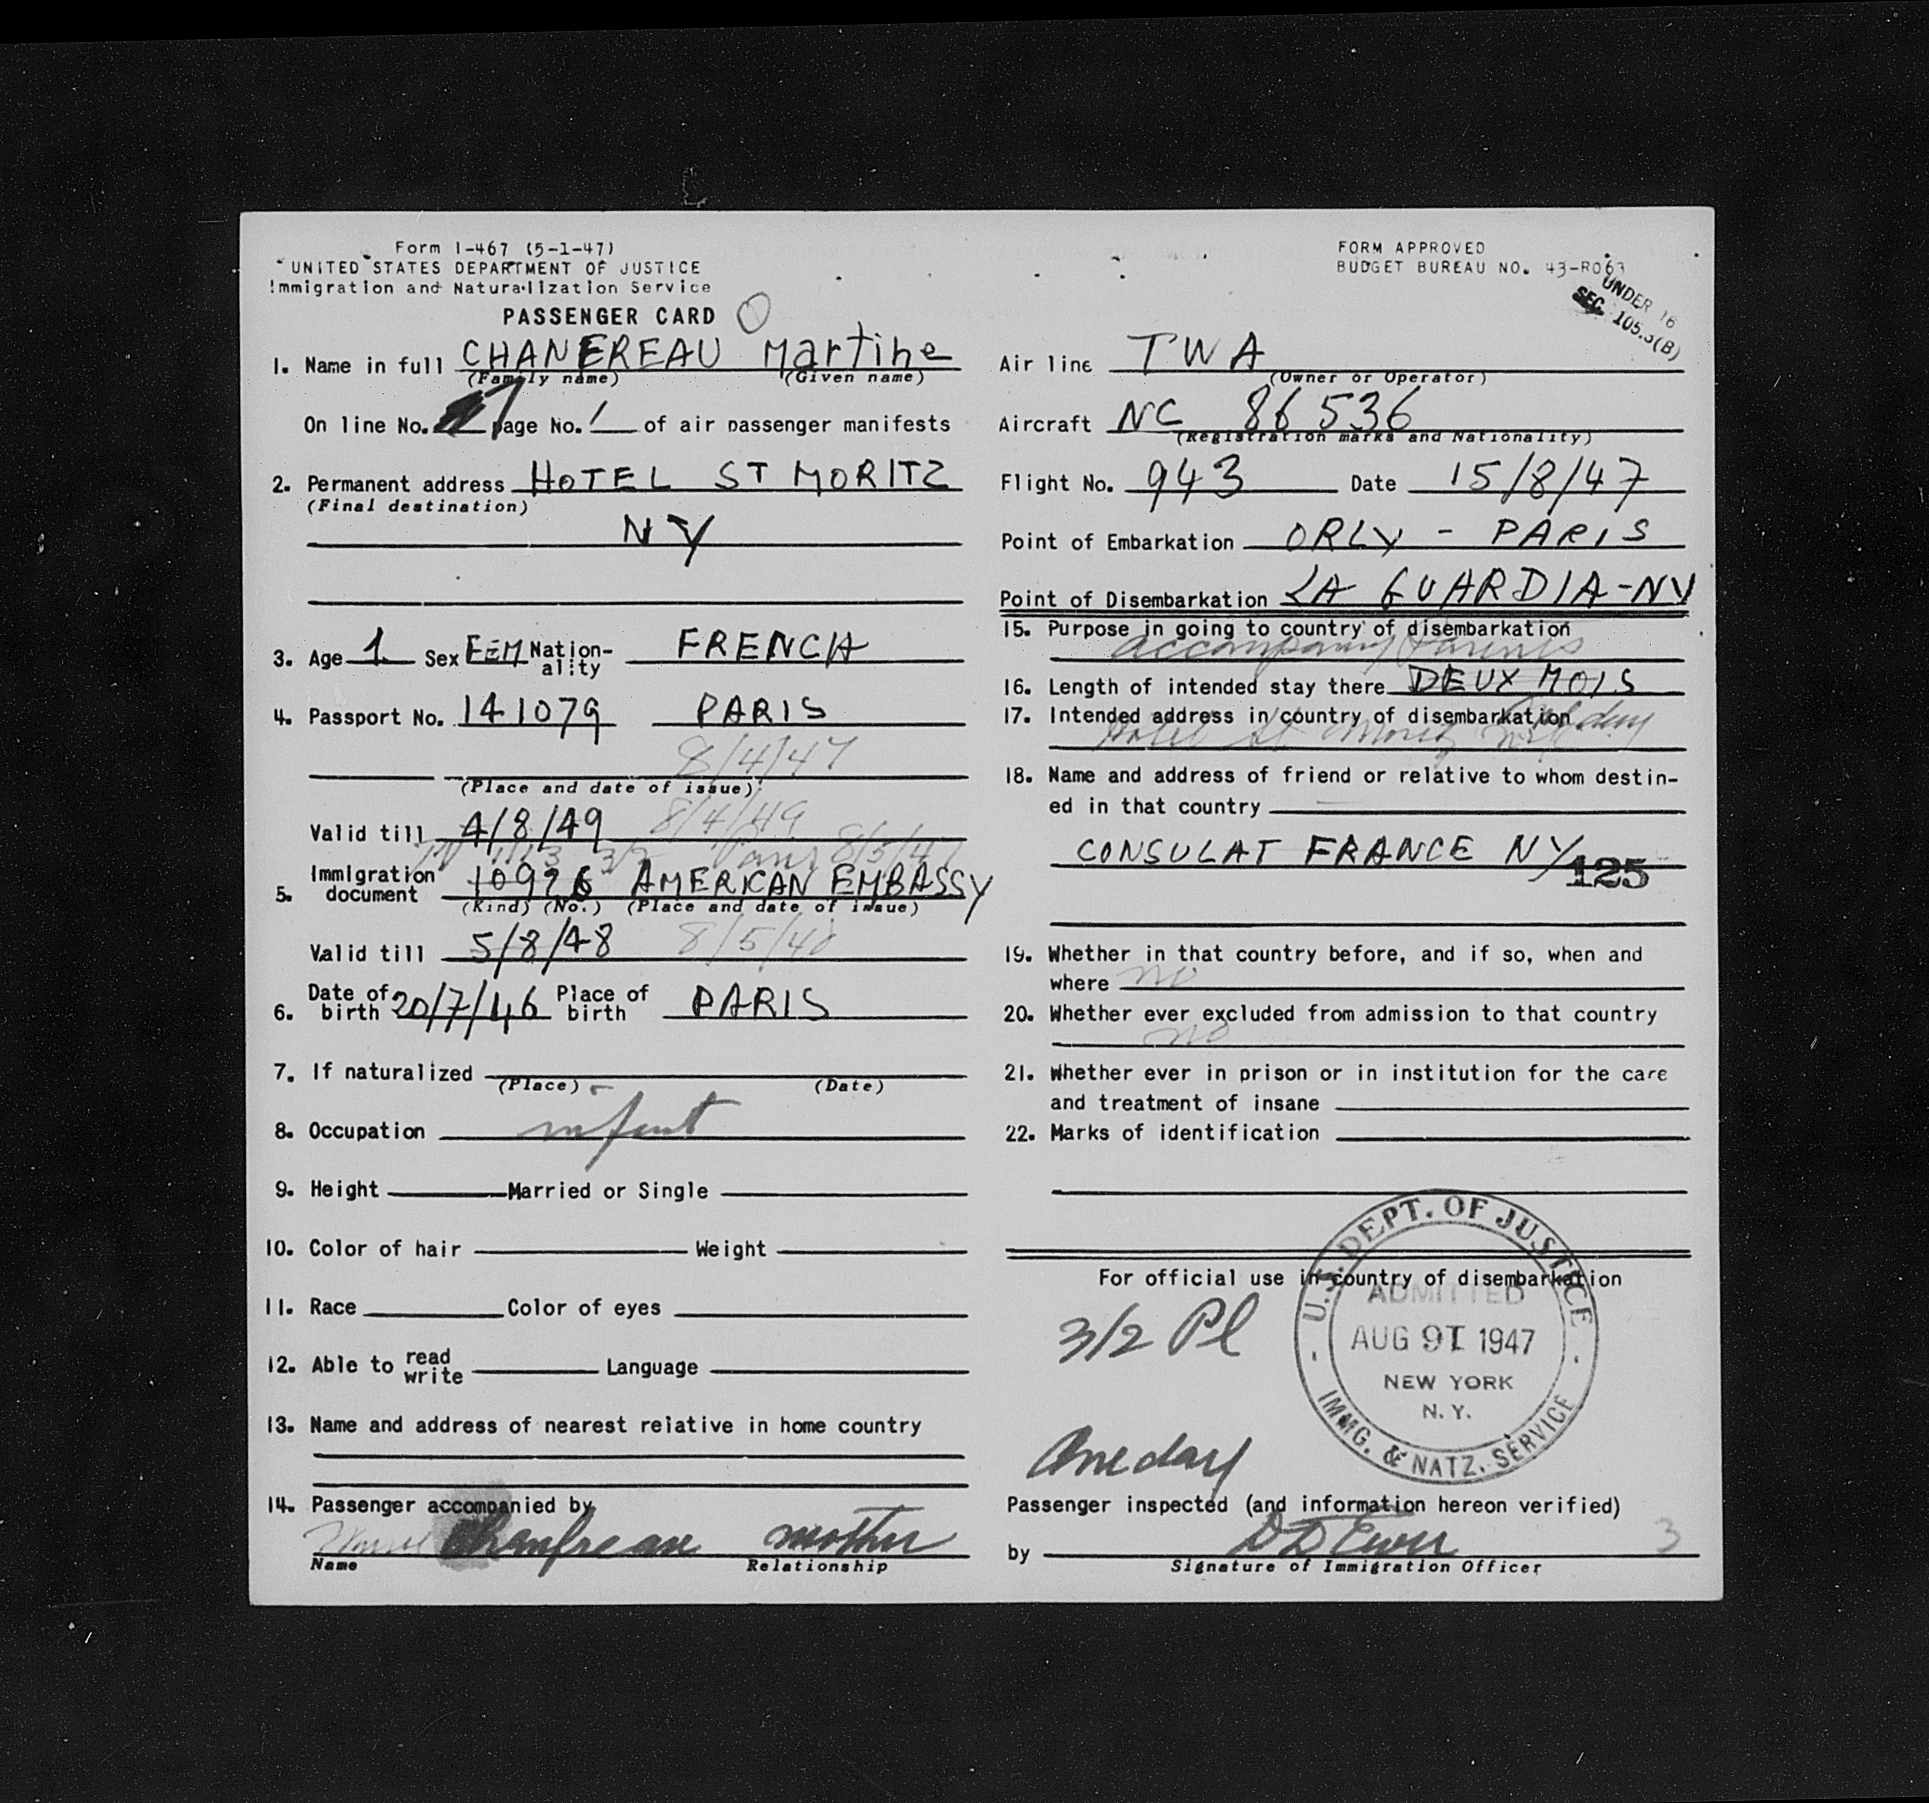 Form I-467 (5-1-47)
UNITED STATES DEPARTMENT OF JUSTICE
Immigration and Naturalization Service
PASSENGER CARD
1. Name in full CHANEREAU Martine
(Family name) (Given name)
On line No. 7 page No. 1 of air passenger manifests
2. Permanent address HOTEL ST MORITZ
(Final destination)
NY
3. Age 1 Sex FEM Nationality FRENCH
4. Passport No. 141079 PARIS
8/4/47
(Place and date of issue)
Valid till 4/8/49 8/4/49
3/2 Paris 8/5/47
5. Immigration document 10976 AMERICAN EMBASSY
(Kind) (No.) (Place and date of issue)
Valid till 5/8/48 8/5/48
6. Date of birth 20/7/46 Place of birth PARIS
7. If naturalized
(Place) (Date)
8. Occupation infant
9. Height Married or Single
10. Color of hair Weight
11. Race Color of eyes
12. Able to read write Language
13. Name and address of nearest relative in home country
14. Passenger accompanied by
Chanfreau mother
Name Relationship
FORM APPROVED
BUDGET BUREAU NO. 43-R063
UNDER 16
SEC. 105.3(B)
Air line TWA
(Owner or Operator)
Aircraft NC 86536
(Registration marks and Nationality)
Flight No. 943 Date 15/8/47
Point of Embarkation ORLY - PARIS
Point of Disembarkation LA GUARDIA-NY
15. Purpose in going to country of disembarkation
accompany Parents
16. Length of intended stay there DEUX MOIS
17. Intended address in country of disembarkation
Hotel St Moritz NYC
18. Name and address of friend or relative to whom destin-
ed in that country
CONSULAT FRANCE NY
125
19. Whether in that country before, and if so, when and
where no
20. Whether ever excluded from admission to that country
no
21. Whether ever in prison or in institution for the care
and treatment of insane
22. Marks of identification
For official use in country of disembarkation
3/2 Pl
U.S. DEPT. OF JUSTICE
ADMITTED
AUG 1947
NEW YORK
N.Y.
IMMG. & NATZ. SERVICE
One day
Passenger inspected (and information hereon verified)
by
Signature of Immigration Officer
3